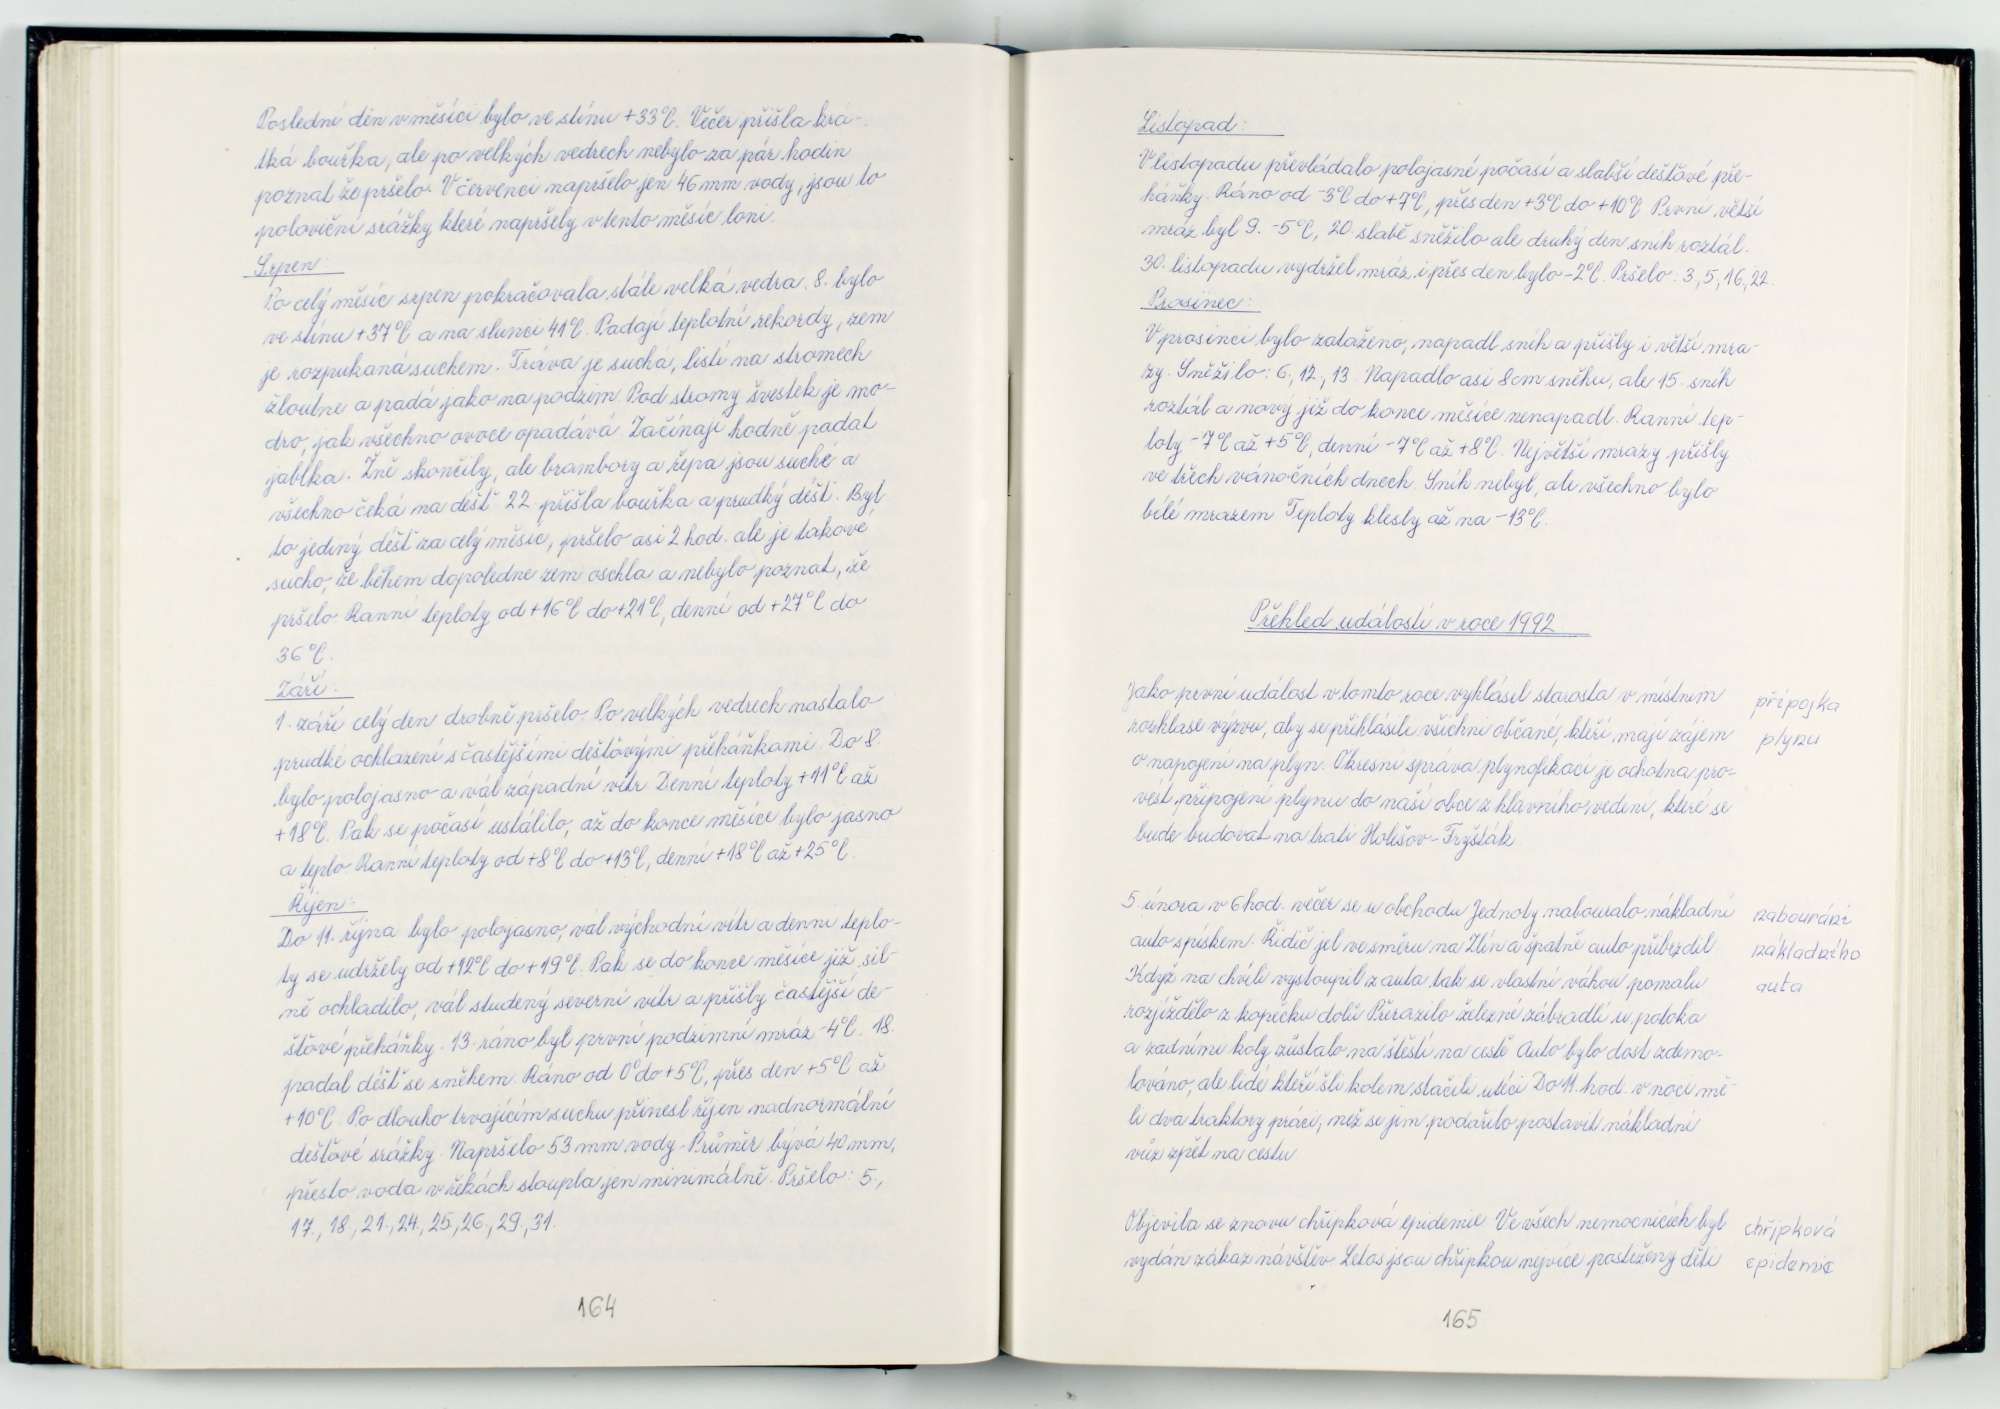 Poslední den v měsíci bylo ve stínu +33°C. Večer přišla krá-
tká bouřka, ale po velkých vedrech nebylo za pár hodin
poznat že pršelo. V červenci napršelo jen 46 mm vody, jsou to
poloviční srážky které napršely v tento měsíc loni.
Srpen:
Po celý měsíc srpen pokračovala stále velká vedra. 8. bylo
ve stínu +37°C a na slunci 41°C. Padají teplotní rekordy, zem
je rozpukaná suchem. Tráva je suchá, listí na stromech
žloutne a padá jako na podzim. Pod stromy švestek je mo-
dro, jak všechno ovoce opadává. Začínají hodně padat
jablka. Žně skončily, ale brambory a řepa jsou suché a
všechno čeká na déšť. 22. přišla bouřka a prudký déšť. Byl
to jediný déšť za celý měsíc, pršelo asi 2 hod. ale je takové
sucho, že během dopoledne zem oschla a nebylo poznat, že
pršelo. Ranní teploty od +16°C do +21°C, denní od +27°C do
36°C.
Září:
1. září celý den drobně pršelo. Po velkých vedrech nastalo
prudké ochlazení s častějšími dešťovými přeháňkami. Do 8.
bylo polojasno a vál západní vítr. Denní teploty +11°C až
+18°C. Pak se počasí ustálilo, až do konce měsíce bylo jasno
a teplo. Ranní teploty od +8°C do +13°C, denní +18°C až +25°C.
Říjen:
Do 11. října bylo polojasno, vál východní vítr a denní teplo-
ty se udržely od +12°C do +19°C. Pak se do konce měsíce již sil-
ně ochladilo, vál studený severní vítr a přišly častější de-
šťové přeháňky. 13. ráno byl první podzimní mráz -4°C. 18.
padal déšť se sněhem. Ráno od 0° do +5°C, přes den +5°C až
+10°C. Po dlouho trvajícím suchu přinesl říjen nadnormální
dešťové srážky. Napršelo 53 mm vody. Průměr bývá 40 mm,
přesto voda v řekách stoupla jen minimálně. Pršelo: 5.,
17., 18., 21., 24., 25., 26., 29., 31.
164
Listopad:
V listopadu převládalo polojasné počasí a slabší dešťové pře-
háňky. Ráno od -3°C do +7°C, přes den +3°C do +10°C. První větší
mráz byl 9. -5°C, 20. slabě sněžilo ale druhý den sníh roztál.
30. listopadu vydržel mráz i přes den bylo -2°C. Pršelo: 3., 5., 16., 22.
Prosinec:
V prosinci bylo zataženo, napadl sníh a přišly i větší mra-
zy. Sněžilo: 6., 12., 13. Napadlo asi 8 cm sněhu, ale 15. sníh
roztál a nový již do konce měsíce nenapadl. Ranní tep-
loty -7°C až +5°C, denní -7°C až +8°C. Největší mrazy přišly
ve třech vánočních dnech. Sníh nebyl, ale všechno bylo
bílé mrazem. Teploty klesly až na -13°C.
Přehled událostí v roce 1992
Jako první událost v tomto roce vyhlásil starosta v místním
rozhlase výzvu, aby se přihlásili všichni občané, kteří mají zájem
o napojení na plyn. Okresní správa plynofikací je ochotna pro-
vést připojení plynu do naší obce z hlavního vedení, které se
bude budovat na trati Holešov-Fryšták
přípojka
plynu
5. února v 6 hod. večer se u obchodu Jednoty nabouralo nákladní
auto s pískem. Řidič jel ve směru na Zlín a špatně auto přibrzdil.
Když na chvíli vystoupil z auta tak se vlastní váhou pomalu
rozjíždělo z kopečku dolů. Přerazilo železné zábradlí u potoka
a zadními koly zůstalo na štěstí na cestě. Auto bylo dost zdemo-
lováno, ale lidé kteří šli kolem stačili utéci. Do 11. hod. v noci mě-
li dva traktory práci, než se jim podařilo postaviti nákladní
vůz zpět na cestu
nabourání
nákladního
auta
Objevila se znovu chřipková epidemie. Ve všech nemocnicích byl
vydán zákaz návštěv. Letos jsou chřipkou nejvíce postiženy děti
chřipková
epidemie
165